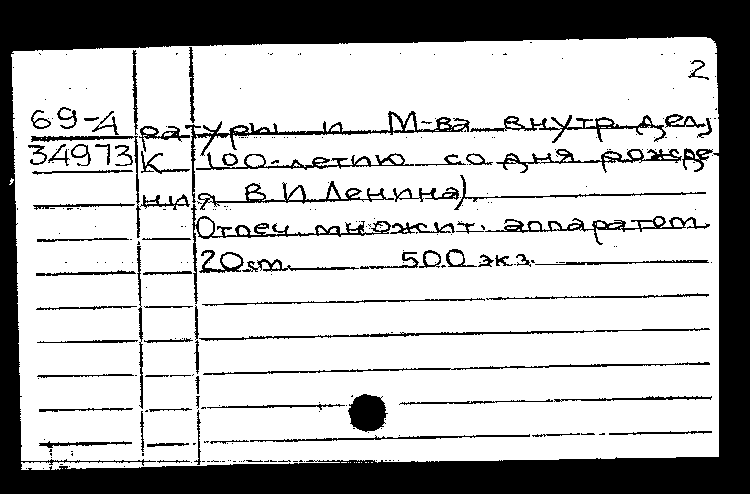 2
69-4 ратуры и М-ва внутр дел,
34973 К 100-летию со дня рожде-
ния В.И Ленина).
Отпеч. множит. аппаратом.
20 ст. 500 экз.